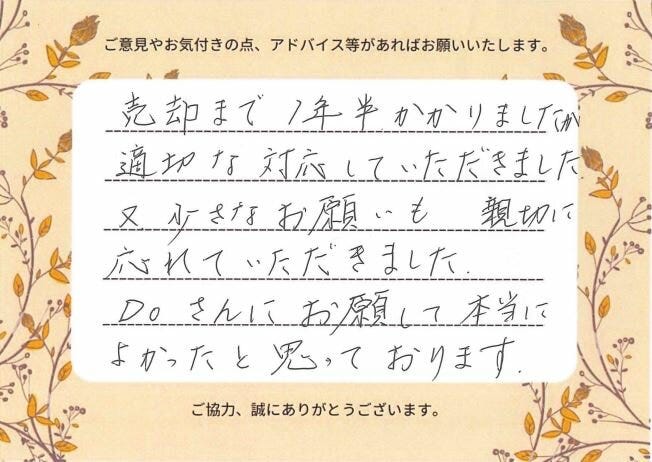 ご意見やお気付きの点、アドバイス等があればお願いいたします。
売却まで1年半かかりましたが
適切な対応していただきました
又少さなお願いも 親切に
応れていただきました.
Doさんにお願して本当に
よかったと思っております.
ご協力、誠にありがとうございます。